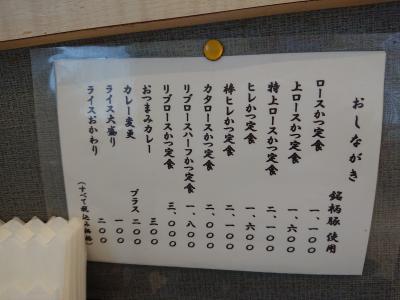 おしながき
銘柄豚使用
ロースかつ定食 一、一〇〇
上ロースかつ定食 一、六〇〇
特上ロースかつ定食 二、一〇〇
ヒレかつ定食 一、六〇〇
棒ヒレかつ定食 二、一〇〇
カタロースかつ定食 二、〇〇〇
リブロースハーフかつ定食 一、八〇〇
リブロースかつ定食 三、〇〇〇
おつまみカレー 三〇〇
カレー変更 プラス 二〇〇
ライス大盛り 一〇〇
ライスおかわり 二〇〇
(すべて税込み価格)